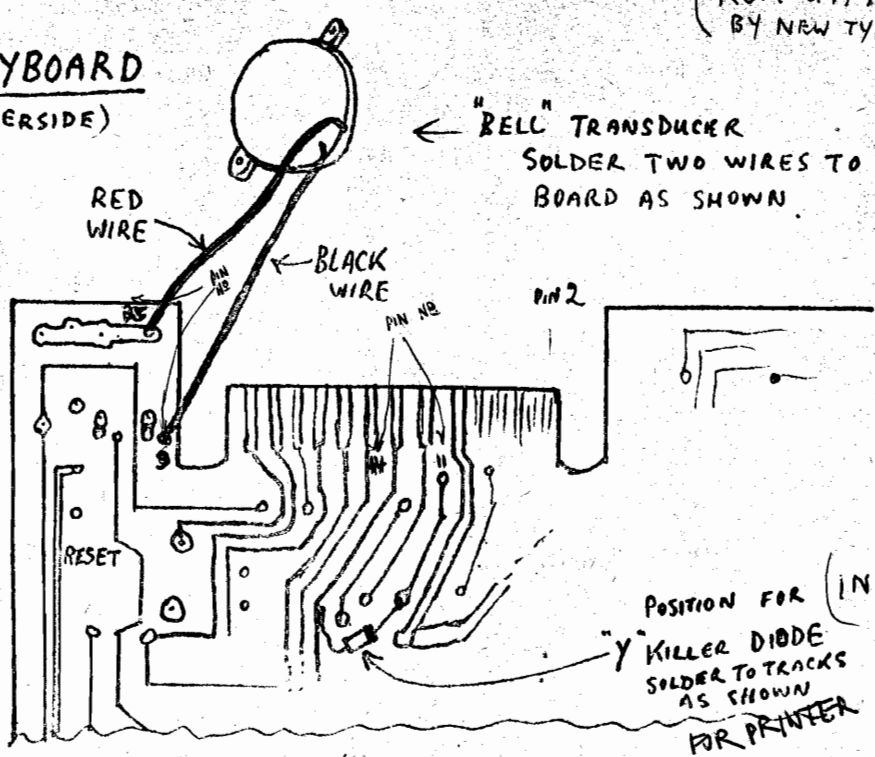 BY NEW TY
YBOARD
ERSIDE)
"BELL" TRANSDUCER
SOLDER TWO WIRES TO
BOARD AS SHOWN.
RED
WIRE
BLACK
WIRE
PIN
NO
PIN NO
PIN 2
RESET
POSITION FOR (IN
"Y" KILLER DIODE
SOLDER TO TRACKS
AS SHOWN
FOR PRINTER